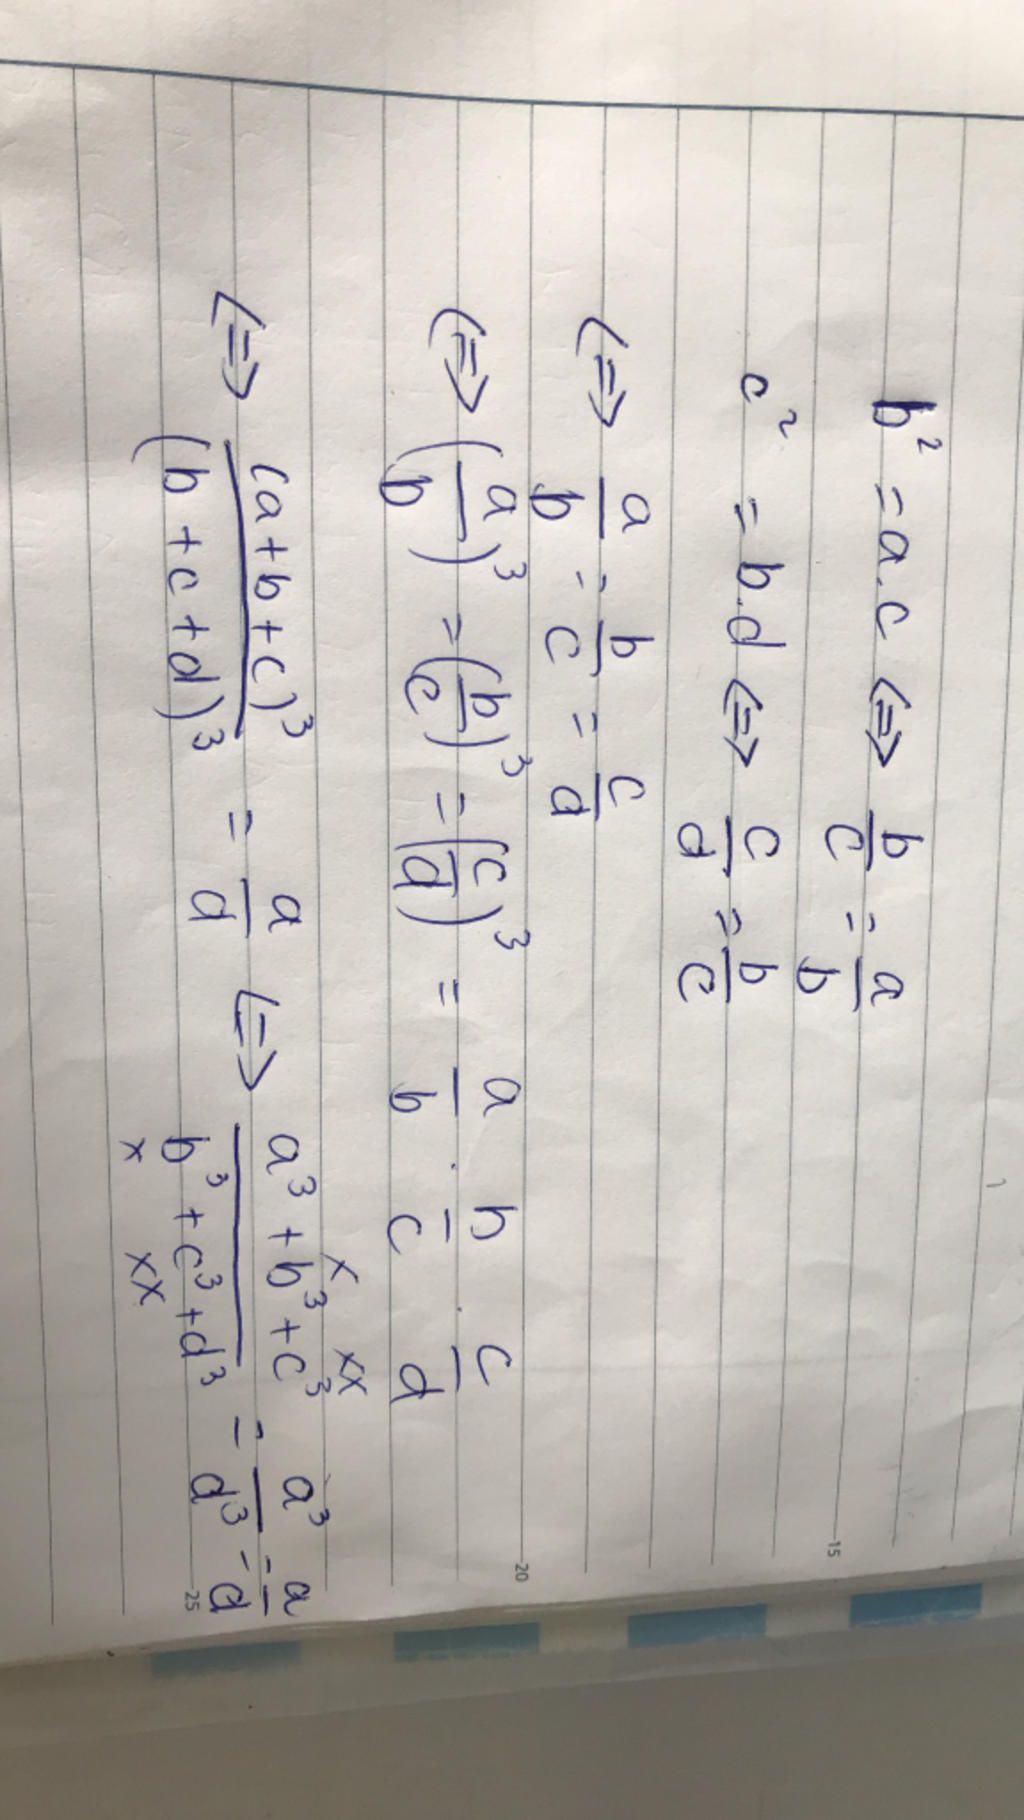 b² = a.c <=> b/c = a/b
c² = b.d <=> c/d = b/c
<=> a/b = b/c = c/d
<=> (a/b)³ = (b/c)³ = (c/d)³ = a/b . b/c . c/d
<=> (a+b+c)³/(b+c+d)³ = a/d <=> a³+b³+c³/b³+c³+d³ = a³/d³ = a/d
x xx
x xx
15
20
25